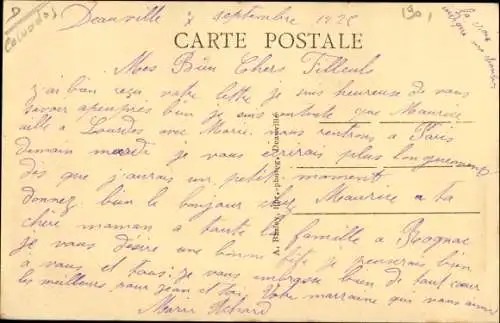 Deauville 7 septembre 192
D
Calvados
CARTE POSTALE
Mes Bien Chers Filleuls
j'ai bien reçu votre lettre je suis heureuse de vous
savoir apeuprès bien je suis contente que Maurice
aille a Lourdes avec Marie nous rentrons a Paris
demain mardi je vous ecrirais plus longuement
dès que j'aurais un petit moment
donnez bien le bonjour chez Maurice a ta
chère maman a toute la famille a Rognac
je vous désire une bonne fête je penserais bien
a vous et tous je vous embrasse bien de tout cœur
les meilleurs pour jean et toi Votre marraine qui vous aime
Marie
A. édit.-photog., Deauville